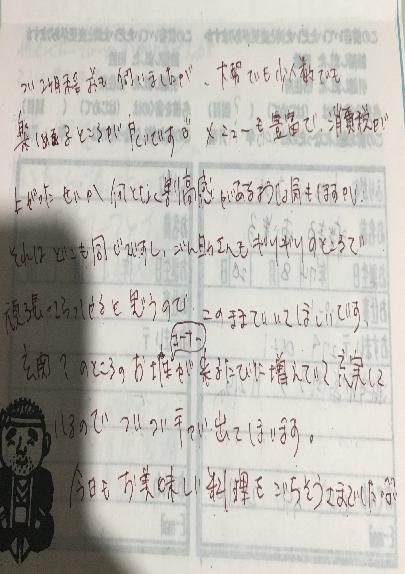 つい2回程 も伺いましたが、大勢でも少人数でも
楽しめるところが良いですネ メニューも豊富で、消費税が
上がったせいか 何となく割高感があるような気もしますが、
それはどこも同じですし、ごん兵さんもギリギリのところで
頑張っていらっしゃると思うので このままでいてほしいです。
コーナー
玄関?のところのお土産が来るたびに増えていて充実して
いるので ついつい手が出てしまいます。
今日もお美味しい料理をごちそうさまでした